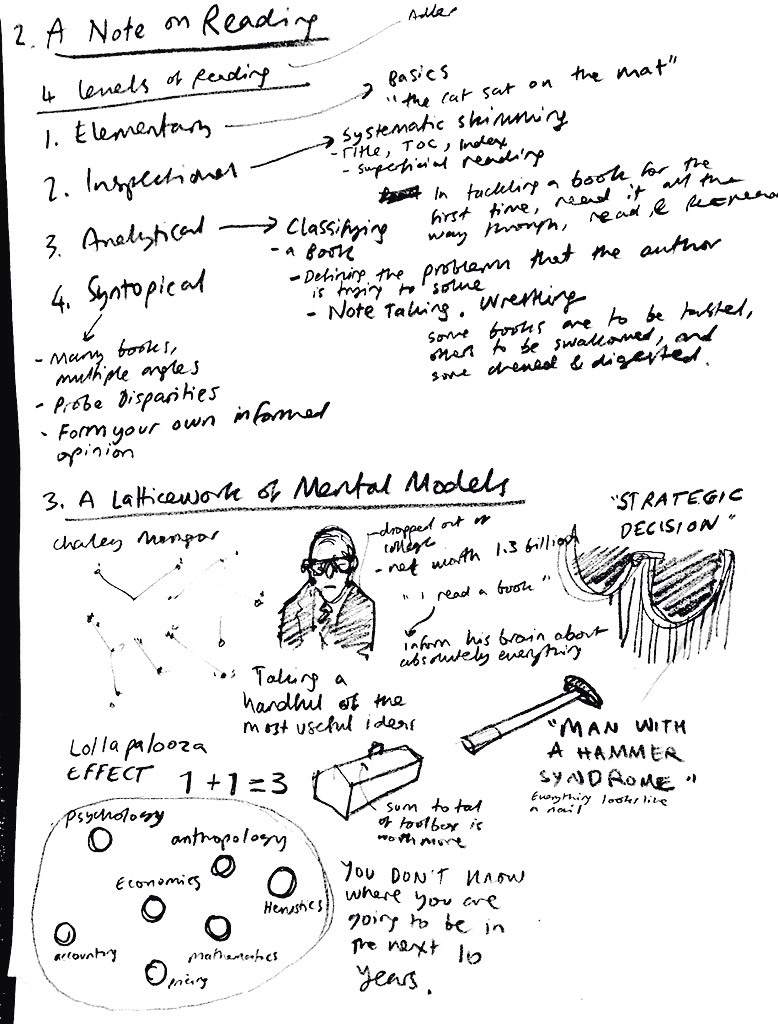 2. A Note on Reading
Adler
4 Levels of Reading
1. Elementary
Basics
"the cat sat on the mat"
2. Inspectional
Systematic skimming
- Title, TOC, Index
- superficial reading
In tackling a book for the
first time, read it all the
way through, read &
3. Analytical
Classifying
- a Book
- Defining the problem that the author
is trying to solve
- Note Taking. Wrestling
some books are to be tasted,
others to be swallowed, and
some chewed & digested.
4. Syntopical
- Many books,
multiple angles
- Probe Disparities
- Form your own informed
opinion
3. A Latticework of Mental Models
Charley Mungar
- dropped out of
college
- net worth 1.3 billion
"I read a book"
inform his brain about
absolutely everything
"STRATEGIC
DECISION"
Taking a
handful of the
most useful ideas
"MAN WITH
A HAMMER
SYNDROME"
Everything looks like
a nail
Lollapalooza
EFFECT 1+1=3
sum total
of toolbox is
worth more
Psychology
anthropology
Economics
Heuristics
accounting
mathematics
pricing
YOU DON'T KNOW
where you are
going to be in
the next 10
years.